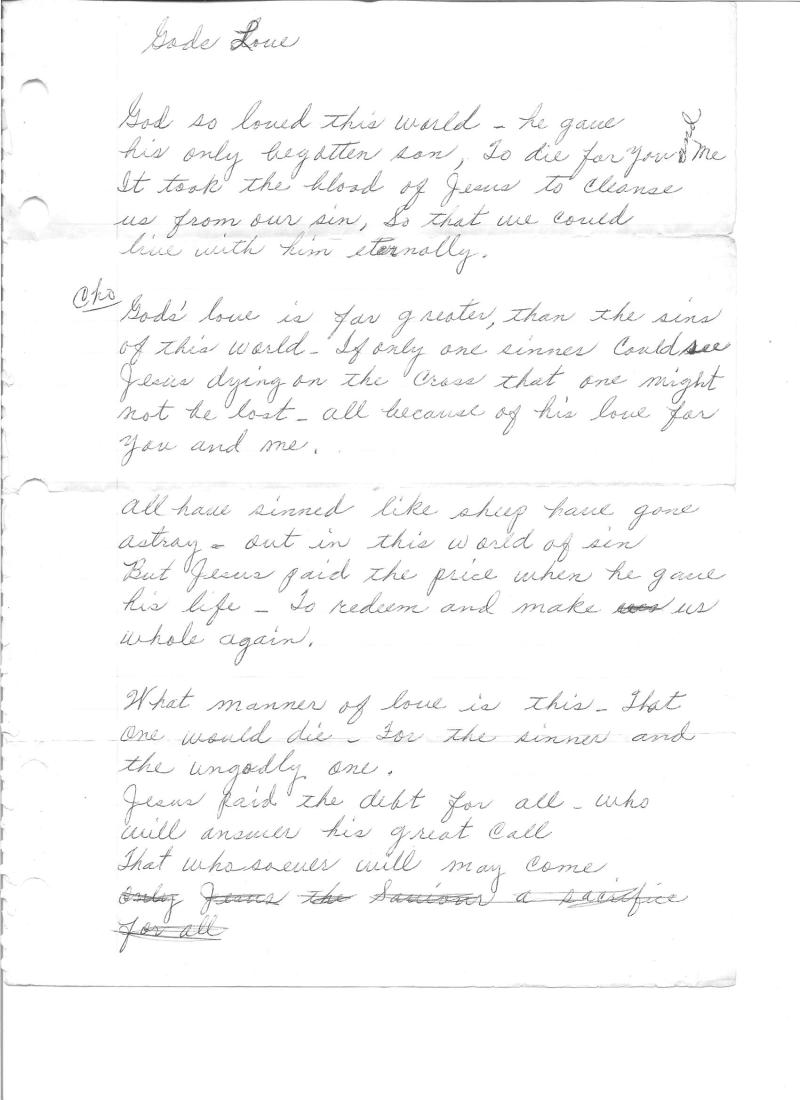 Gods Love
God so loved this world - he gave
his only begotten son, To die for you and me
It took the blood of Jesus to cleanse
us from our sin, So that we could
live with him eternally.
Cho
Gods' love is far greater, than the sins
of this world - If only one sinner could see
Jesus dying on the Cross that one might
not be lost - all because of his love for
you and me.
All have sinned like sheep have gone
astray - out in this world of sin
But Jesus paid the price when he gave
his life - To redeem and make us
whole again.
What manner of love is this - That
one would die - For the sinner and
the ungodly one.
Jesus paid the debt for all - who
will answer his great call
That whosoever will may come
only Jesus the Saviour a sacrifice
for all